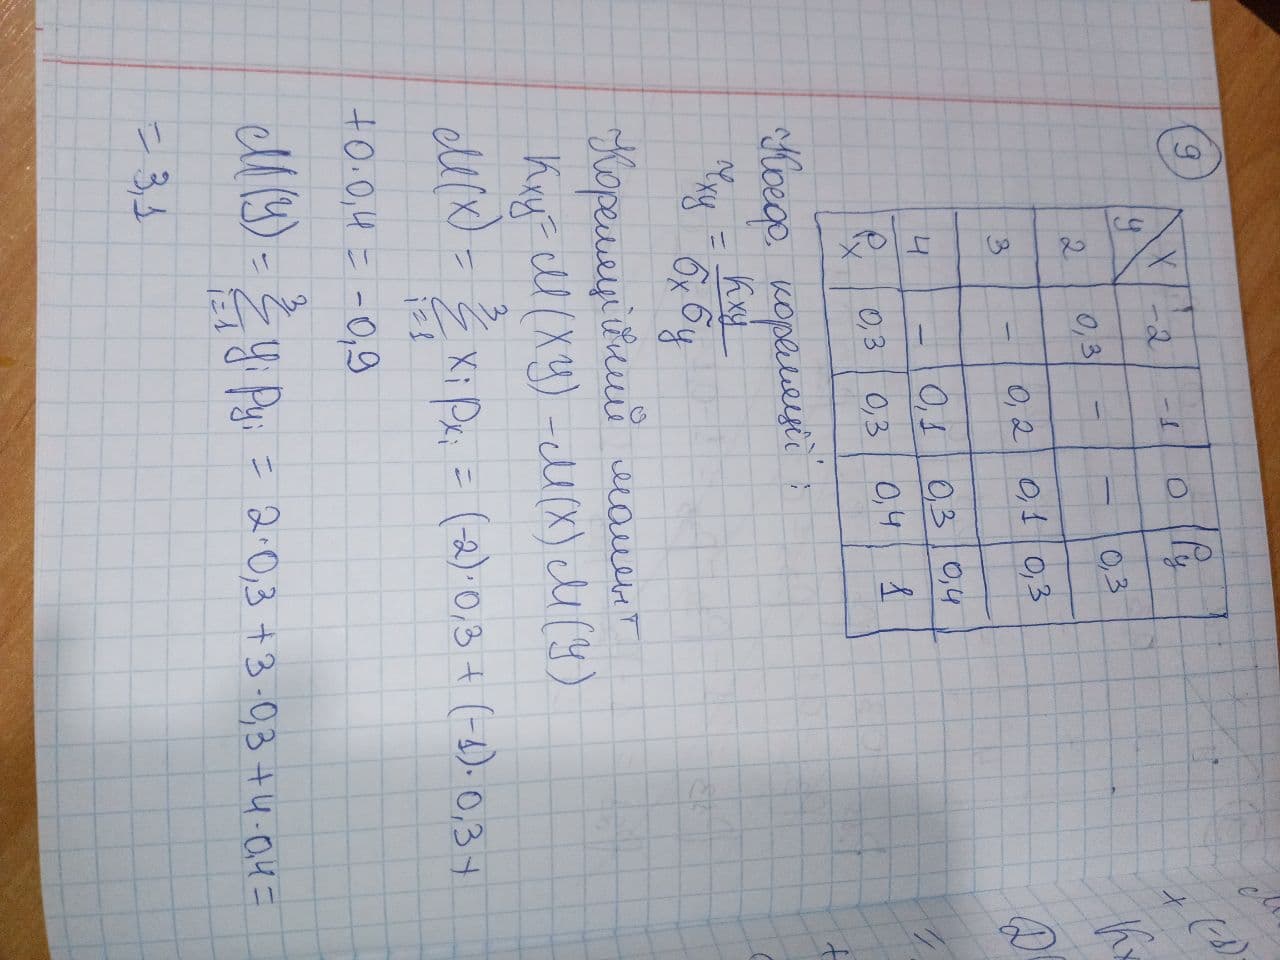 9
У X -2 -1 0 Pу
2 0,3 - - 0,3
3 - 0,2 0,1 0,3
4 - 0,1 0,3 0,4
Px 0,3 0,3 0,4 1
Коеф. кореляції:
rxy = Kxy / σx σy
Кореляційний момент
Kxy = M(XY) - M(X) M(Y)
M(X) = 3 ∑ i=1 xi pxi = (-2)·0,3 + (-1)·0,3 +
+0·0,4 = -0,9
M(Y) = 3 ∑ i=1 yi pyi = 2·0,3 + 3·0,3 + 4·0,4 =
= 3,1
+ (-1)
Kx
D(
=
+